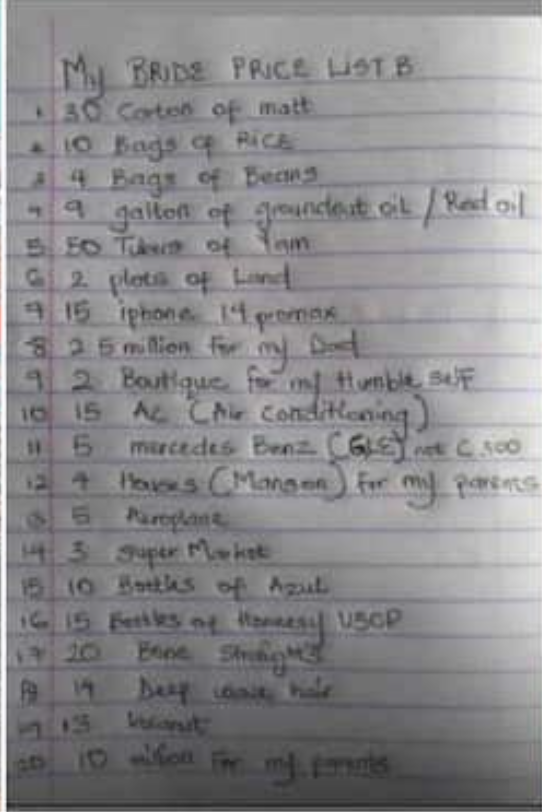 My BRIDE PRICE LIST B
1 30 Carton of matt
2 10 Bags of RICE
3 4 Bags of Beans
4 9 gallon of groundnut oil / Red oil
5 50 Tubers of Yam
6 2 plots of Land
7 15 iphone 14 promax
8 25 million for my Dad
9 2 Boutique for my Humble self
10 15 AC (Air conditioning)
11 5 mercedes Benz (GLE) not C 300
12 4 Houses (Manson) for my parents
13 5 Aeroplane
14 3 Super Market
15 10 Bottles of Azul
16 15 Bottles of Hennesy VSOP
17 20 Bone Straight
18 14 Deep wave hair
19 13
20 10 million for my parents